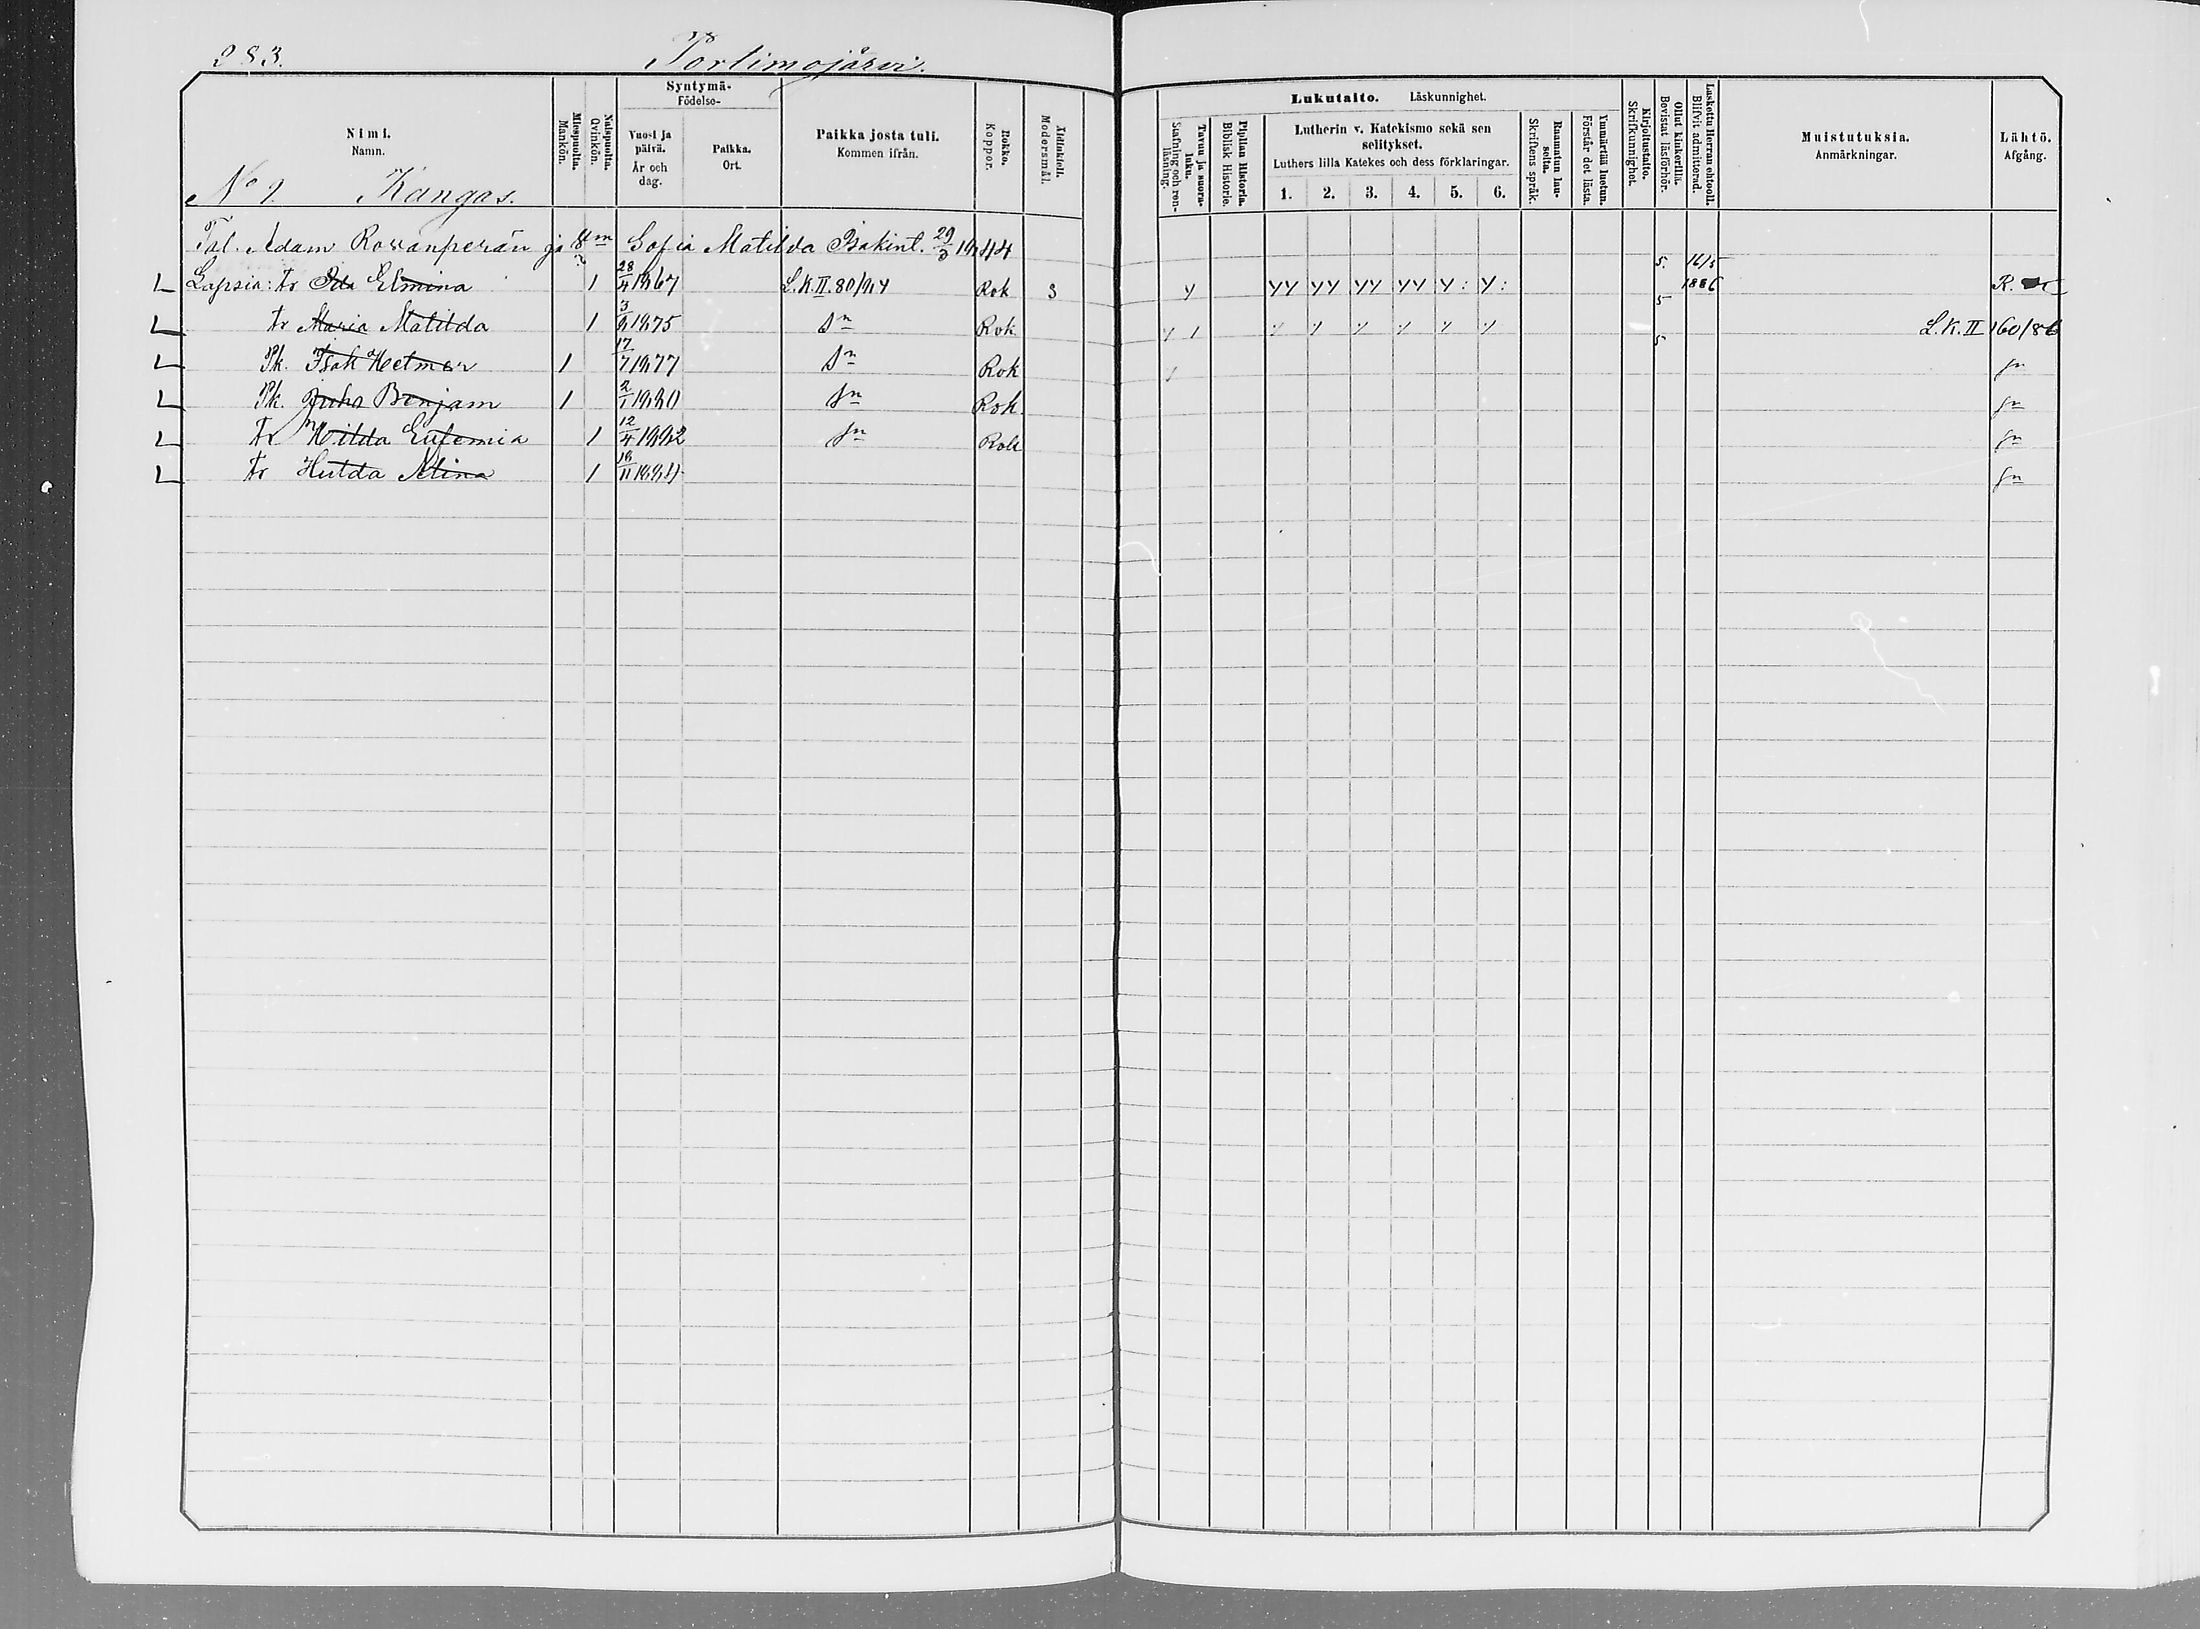 283.
Portimojärvi.
Nimi.
Namn.
Miespuolta.
Mankön.
Naispuolta.
Qvinkön.
Syntymä-
Födelse-
Vuosi ja päivä.
År och dag.
Paikka.
Ort.
Paikka josta tuli.
Kommen ifrån.
Rokko.
Koppor.
Äidinkieli.
Modersmål.
Lukutaito. Läskunnighet.
Tavuu ja suora-luku.
Stafning och ren-läsning.
Piplian Historia.
Biblisk Historie.
Lutherin v. Katekismo sekä sen
selitykset.
Luthers lilla Katekes och dess förklaringar.
1. 2. 3. 4. 5. 6.
Raamatun lau-seita.
Skriftens språk.
Ymmärtää luetun.
Förstår det lästa.
Kirjoitustaito.
Skrifkunnighet.
Ollut kinkerillä.
Bevistat läsförhör.
Laskettu Herran ehtooll.
Blifvit admitterad.
Muistutuksia.
Anmärkningar.
Lähtö.
Afgång.
No 1. Kangas.
Tal. Adam Rovanperän ja Sofia Matilda Isakint. 29/3 1844
Lapsia: Tr Ida Elmina 1 28/4 1867 L.K.II.80/84 Rok 3 y yy yy yy yy y: y: 5. 16/5 1886 R.
Tr Maria Matilda 1 1875 Dn Rok 5 L.K.II 160/86
Pk. Isak Helmer 1 17/7 1877 Dn Rok 5 Dn
Pk. Juho Benjam 1 2/1 1880 Dn Rok Dn
Tr Hilda Eufemia 1 12/4 1882 Dn Rok Dn
Tr Hulda Alina 1 18/11 1884 Dn